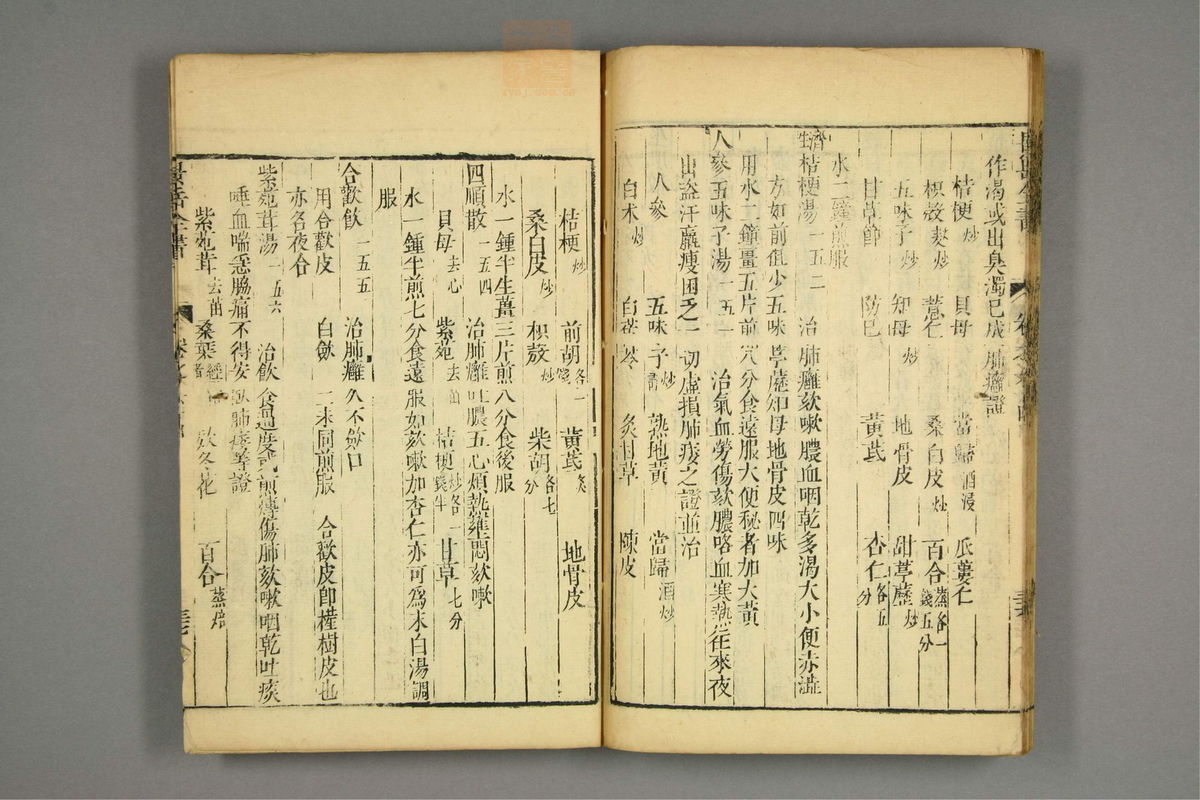 作渴或出臭濁已成肺癰證
桔梗炒 貝母 當歸酒浸 瓜蔞仁
枳殼麩炒 薏仁 桑白皮炒 百合蒸各一錢五分
五味子炒 知母炒 地骨皮 甜葶藶炒
甘草節 防已 黃芪 杏仁各五分
水二鍾煎服
濟生桔梗湯一五二 治肺癰欬嗽膿血咽乾多渴大小便赤澁
方如前但少五味葶藶知母地骨皮四味
用水二鍾薑五片煎六分食遠服大便秘者加大黃
人參五味子湯一五 治氣血勞傷欬膿咯血寒熱往來夜
出盜汗羸瘦困乏一切虛損肺痿之證並治
人參 五味子 熟地黃 當歸酒炒
白术炒 白茯苓 炙甘草 陳皮
桔梗炒 前胡各一錢 黃芪炙 地骨皮
桑白皮炒 枳殼炒 柴胡各七分
水一鍾半生薑三片煎八分食後服
四順散一五四 治肺癰吐膿五心煩熱壅悶欬嗽
貝母去心 紫菀去苗 桔梗炒各一錢半 甘草七分
水一鍾半煎七分食遠服如欬嗽加杏仁亦可為末白湯調
服
合歡飲一五五 治肺癰久不斂口
用合歡皮 白斂 二味同煎服 合歡皮即槿樹皮也
亦名夜合
紫菀茸湯一五六 治飲食過度或煎煿傷肺欬嗽咽乾吐痰
唾血喘急脇痛不得安臥肺痿等證
紫菀茸去苗 桑葉經霜者 款冬花 百合蒸焙